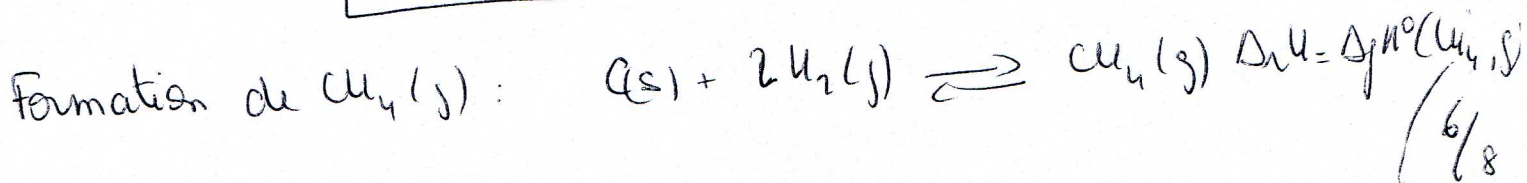 Formation de CH₄(g) : C(s) + 2H₂(g) ⇌ CH₄(g) ΔrH = ΔfH°(CH₄,g)
6/8